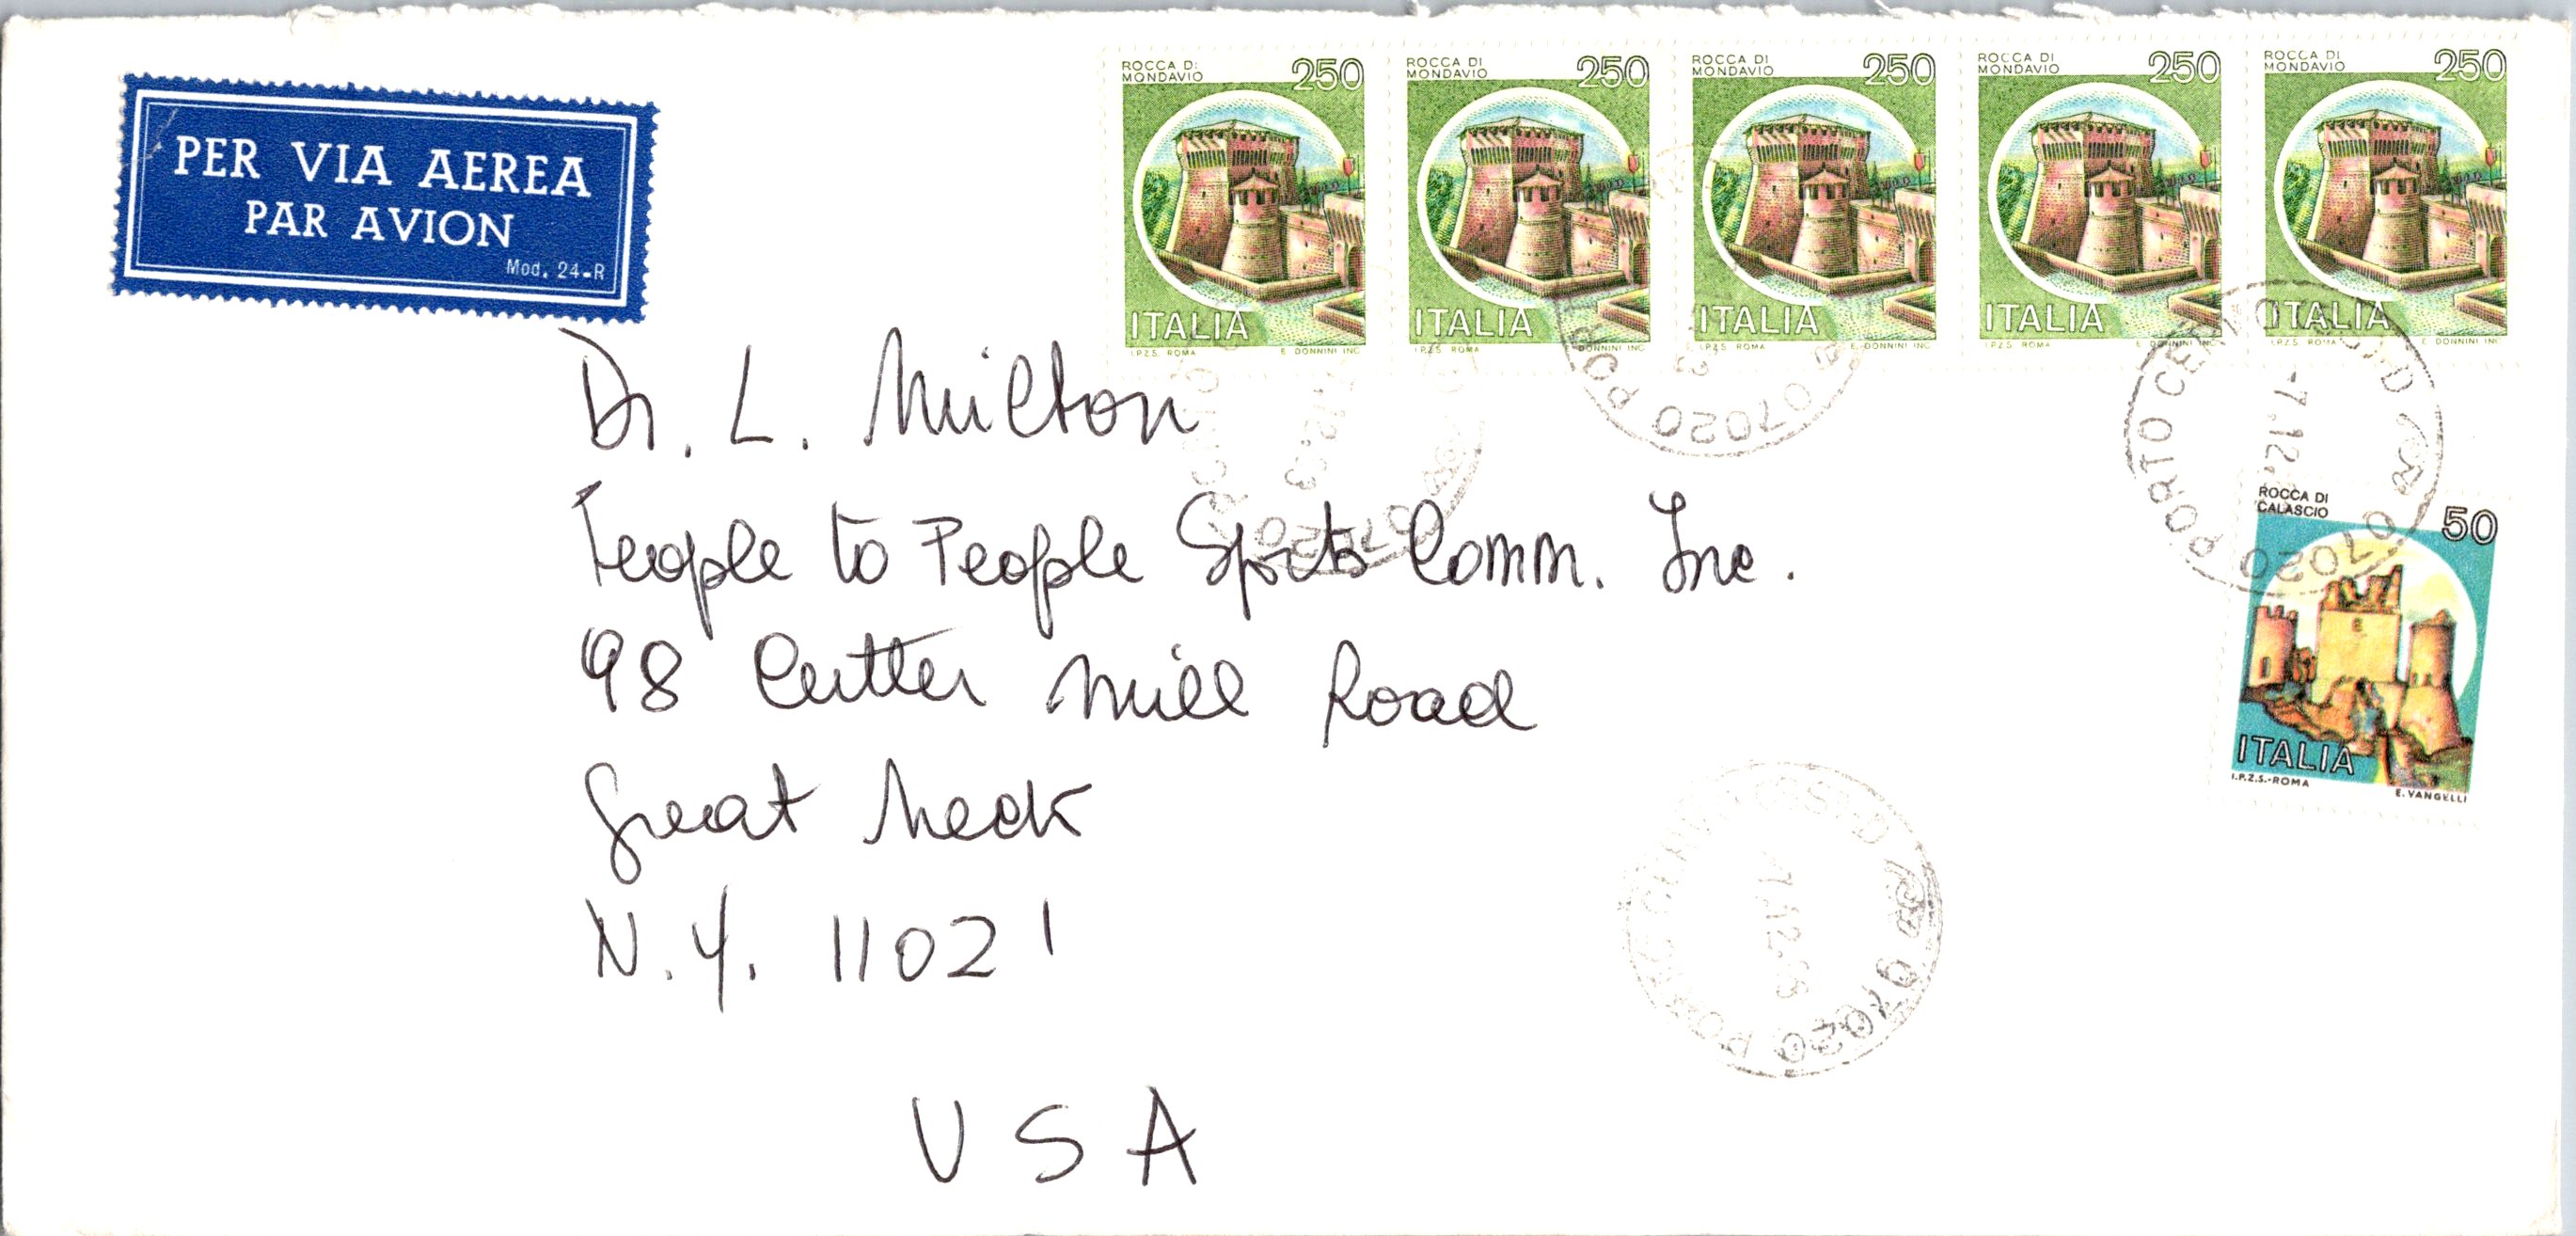 PER VIA AEREA
PAR AVION
Mod. 24-R
ROCCA DI MONDAVIO 250
ITALIA
I.P.Z.S. ROMA E. DONNINI INC
ROCCA DI MONDAVIO 250
ITALIA
I.P.Z.S. ROMA E. DONNINI INC
ROCCA DI MONDAVIO 250
ITALIA
I.P.Z.S. ROMA E. DONNINI INC
ROCCA DI MONDAVIO 250
ITALIA
I.P.Z.S. ROMA E. DONNINI INC
ROCCA DI MONDAVIO 250
ITALIA
I.P.Z.S. ROMA E. DONNINI INC
07020 PORTO CERVO
-7.12.
ROCCA DI
CALASCIO
50
ITALIA
I.P.Z.S.-ROMA E. VANGELLI
Dr. L. Milton
People to People Sports Comm. Inc.
98 Cutter Mill Road
Great Neck
N.Y. 11021
USA
07020